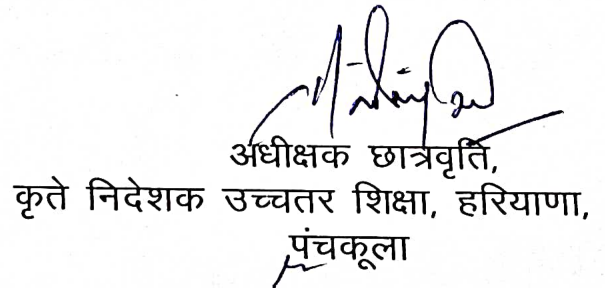 अधीक्षक छात्रवृति,
कृते निदेशक उच्चतर शिक्षा, हरियाणा,
पंचकूला